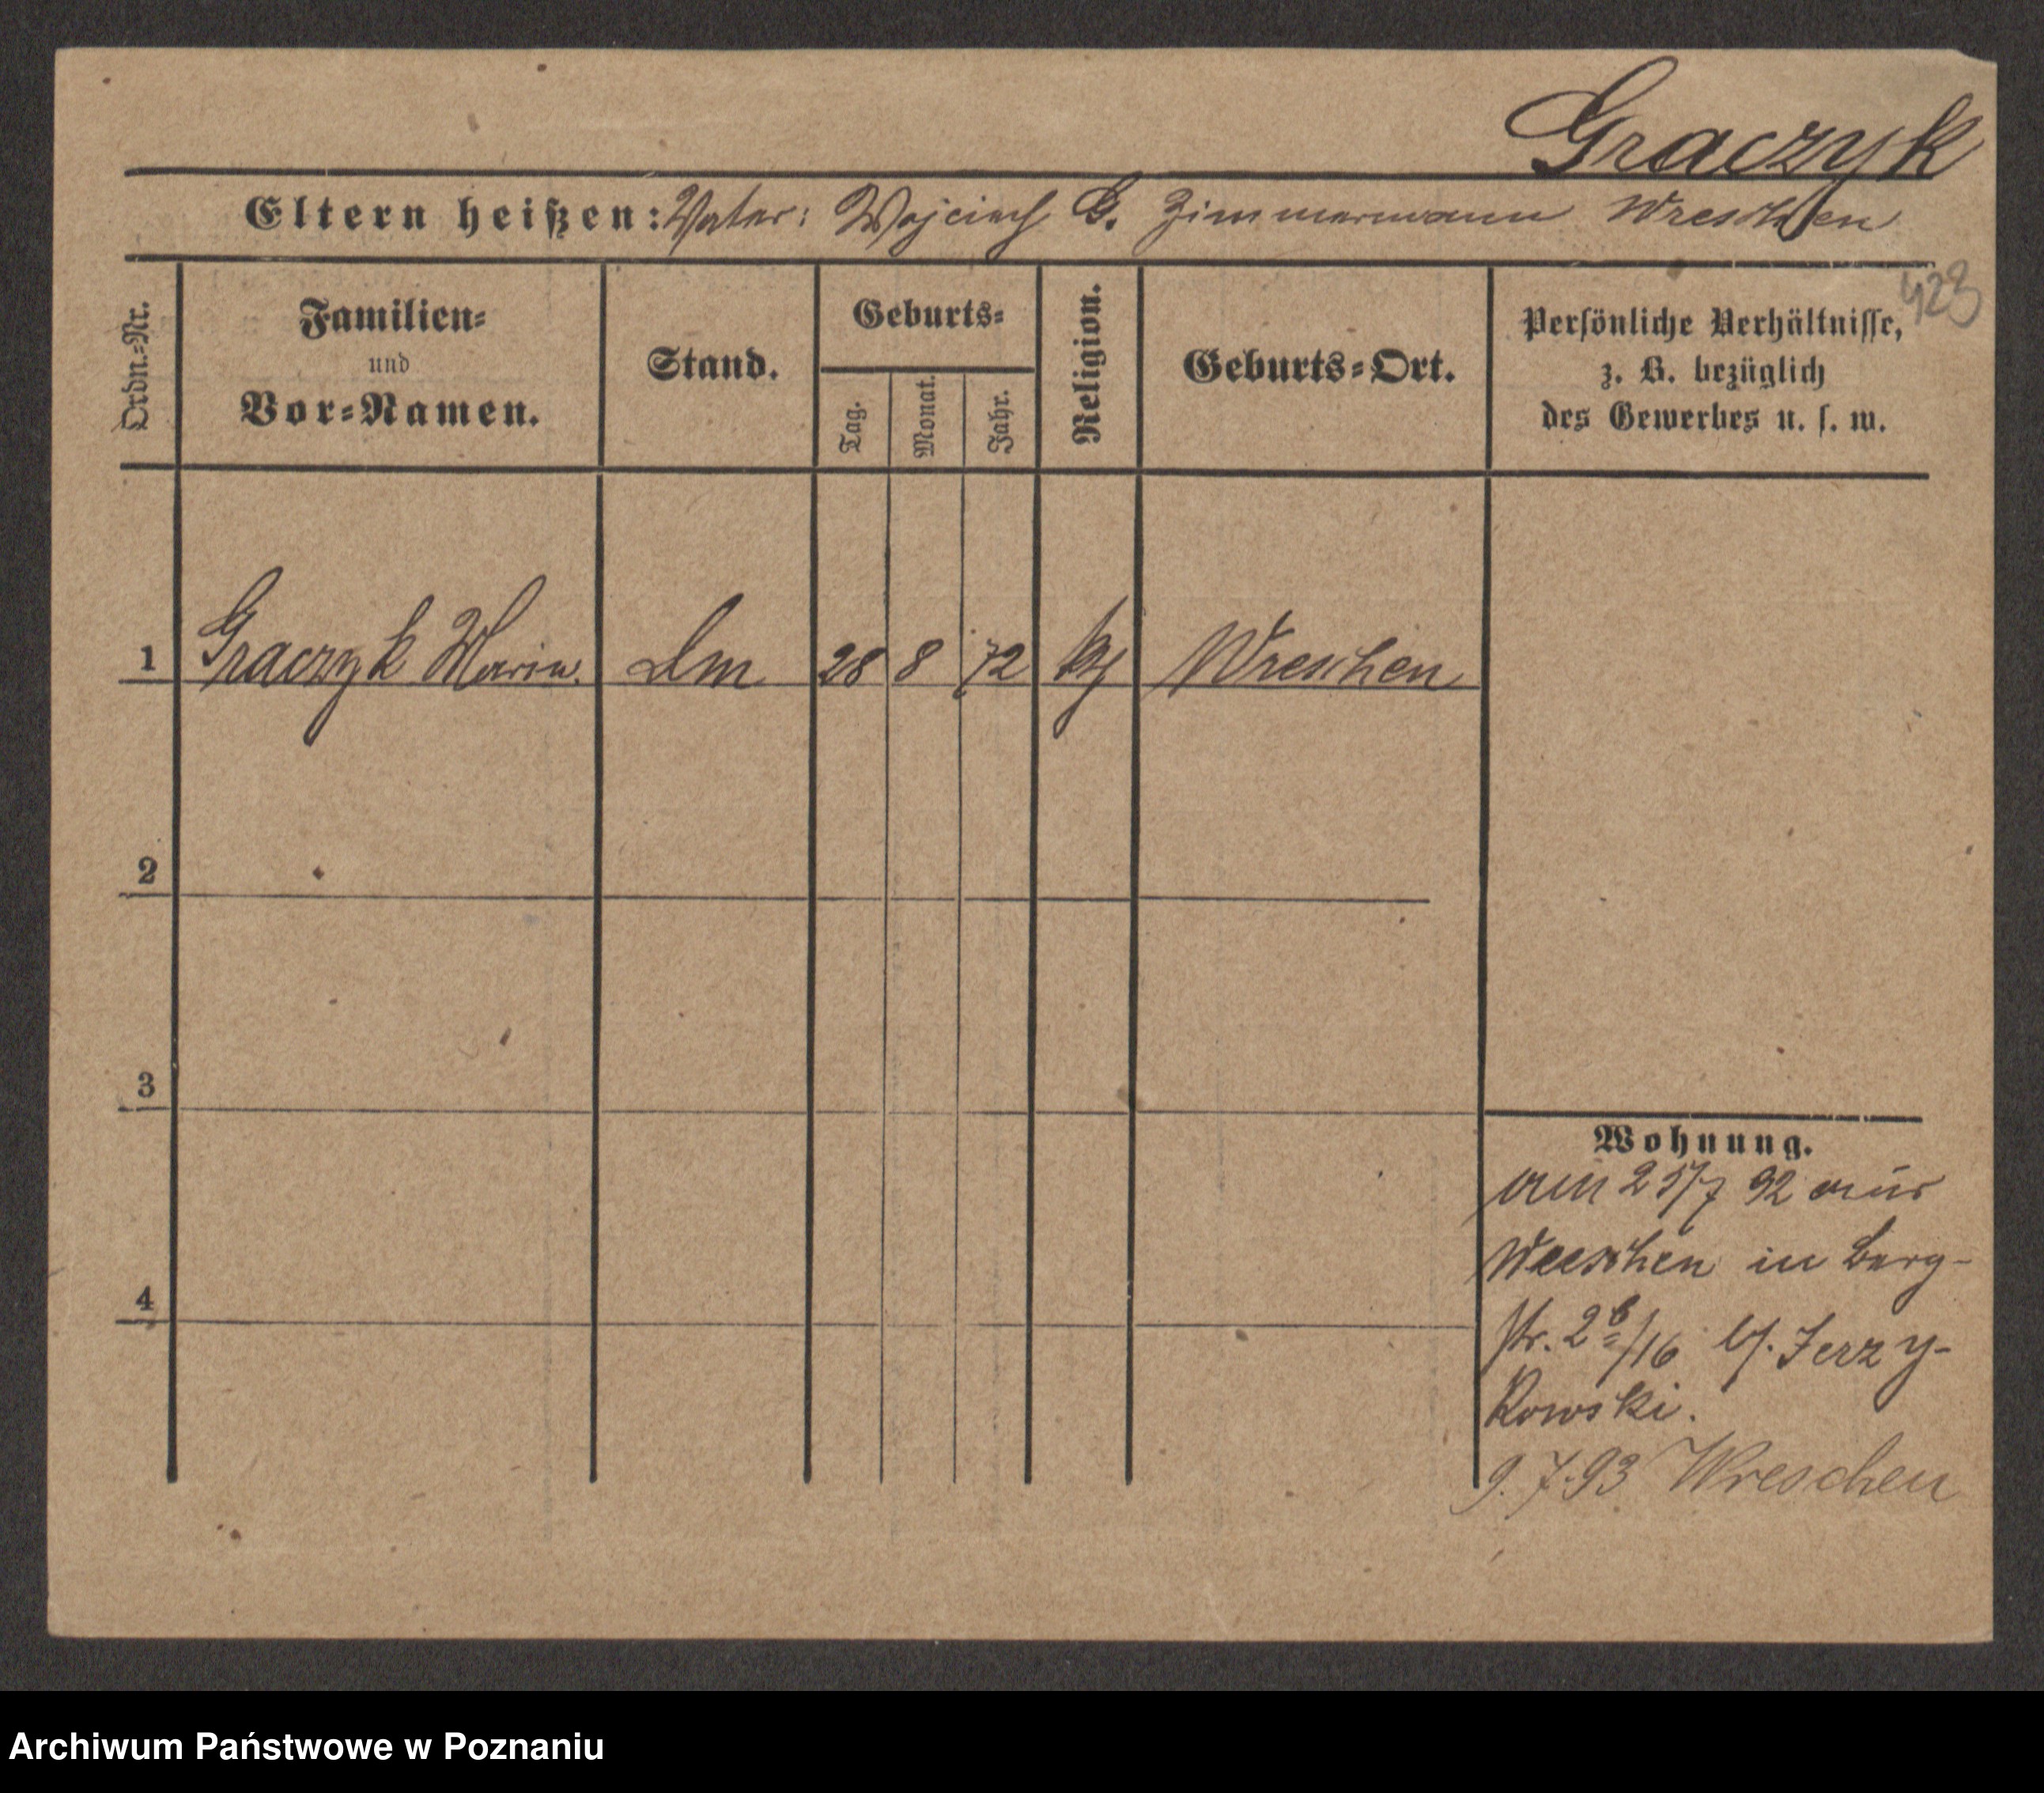 Graczyk
Eltern heißen: Vater: Wojciech G. Zimmermann Wreschen
423
Ordn.-Nr.
Familien-
und
Vor-Namen.
Stand.
Geburts-
Tag.
Monat.
Jahr.
Religion.
Geburts-Ort.
Persönliche Verhältnisse,
z. B. bezüglich
des Gewerbes u. s. w.
1 Graczyk Maria. 28 8 72 Wreschen
2
3
4
Wohnung.
am 25/7 92 aus
Wreschen in Berg-
str. 2b/16 Jerzy-
kowski.
9.7.93 Wreschen
Archiwum Państwowe w Poznaniu